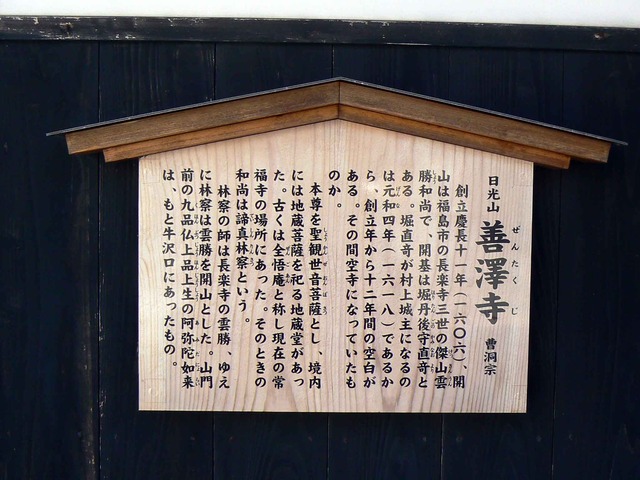 日光山 善澤寺 曹洞宗
ぜんたくじ
創立慶長十一年（一六〇六）、開
山は福島市の長楽寺三世の傑山雲
勝和尚で、開基は堀丹後守直竒と
ある。堀直竒が村上城主になるの
は元和四年（一六一八）であるか
ら、創立年から十二年間の空白が
ある。その間空寺になっていたも
のか。
本尊を聖観世音菩薩とし、境内
には地蔵菩薩を祀る地蔵堂があっ
た。古くは全悟庵と称し現在の常
福寺の場所にあった。そのときの
和尚は諦真林察という。
林察の師は長楽寺の雲勝、ゆえ
に林察は雲勝を開山とした。山門
前の九品仏上品上生の阿弥陀如来
は、もと牛沢口にあったもの。